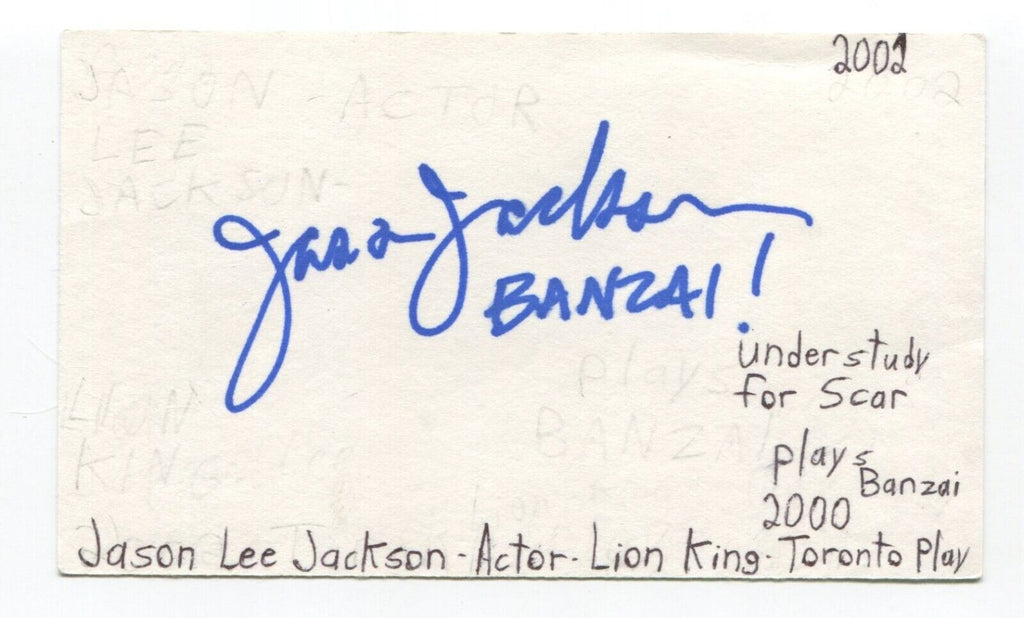 2002
JASON - ACTOR
LEE
JACKSON-
Jason Jackson
BANZAI!
understudy
for Scar
plays
BANZAI
LION
KING
plays
Banzai
2000
Lion
Jason Lee Jackson - Actor - Lion King - Toronto Play